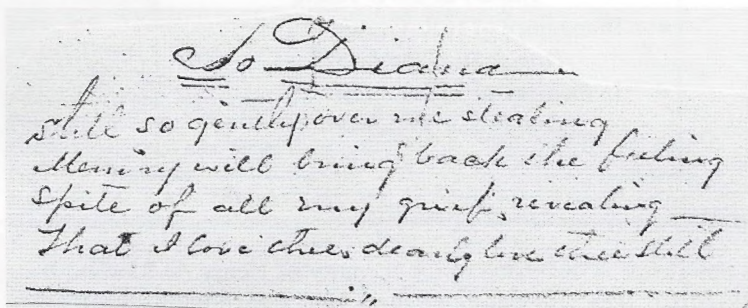 To Diana
Still so gently over me stealing
Memiry will bring back the feeling
Spite of all my grief, revealing
That I love thee, dearly love thee still